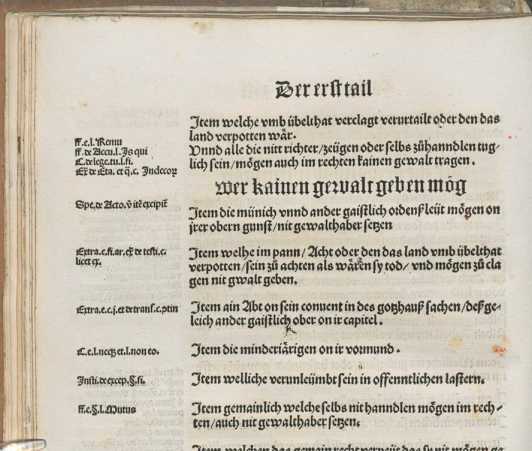 Der erst tail
Item welche vmb übelthat verclagt verurtailt oder den das
land verpotten wär.
ff. e. l. Remu
ff. de Accu. l. Is qui
C. de lege. tu. l. fi.
Vnnd alle die nitt richter/zeügen oder selbs zůhanndlen tug-
lich sein/mögen auch im rechten kainen gewalt tragen.
wer kainen gewalt geben mög
Item die münich vnnd ander gaistlich ordenßleüt mögen on
jrer obern gunst/nit gewalthaber setzen
Item welhe im pann/Acht oder den das land vmb übelthat
verpotten/sein zů achten als wären sy tod/vnd mögen zů cla
gen nit gwalt geben.
Extra. e. c. j. et de transf. c. ptin
Item ain Abt on sein conuent in des gotzhauß sachen/deßge-
leich ander gaistlich ober on ir capitel.
Item die minderiärigen on ir vormund.
Insti. de excep. §. fi.
Item welliche verunleümbt sein in offenntlichen lastern.
ff. e. §. l. Mutus
Item gemainlich welche selbs nit hanndlen mögen im rech-
ten/auch nit gewalthaber setzen.